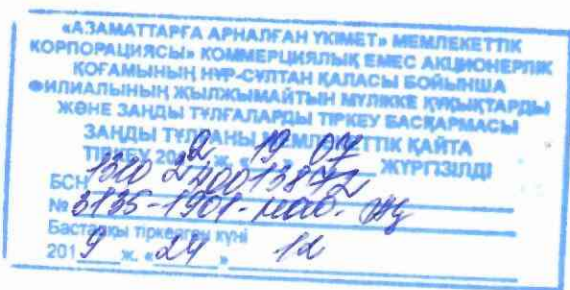 «АЗАМАТТАРҒА АРНАЛҒАН ҮКІМЕТ» МЕМЛЕКЕТТІК
КОРПОРАЦИЯСЫ» КОММЕРЦИЯЛЫҚ ЕМЕС АКЦИОНЕРЛІК
ҚОҒАМЫНЫҢ НҰР-СҰЛТАН ҚАЛАСЫ БОЙЫНША
ФИЛИАЛЫНЫҢ ЖЫЛЖЫМАЙТЫН МҮЛІККЕ ҚҰҚЫҚТАРДЫ
ЖӘНЕ ЗАҢДЫ ТҰЛҒАЛАРДЫ ТІРКЕУ БАСҚАРМАСЫ
ЗАҢДЫ ТҰЛҒАНЫ МЕМЛЕКЕТТІК ҚАЙТА
ТІРКЕУ 20 ж. «19» 07 ЖҮРГІЗІЛДІ
БСН
№ 3135-1901-
Бастапқы тіркелген күні
2019 ж. «24» 12